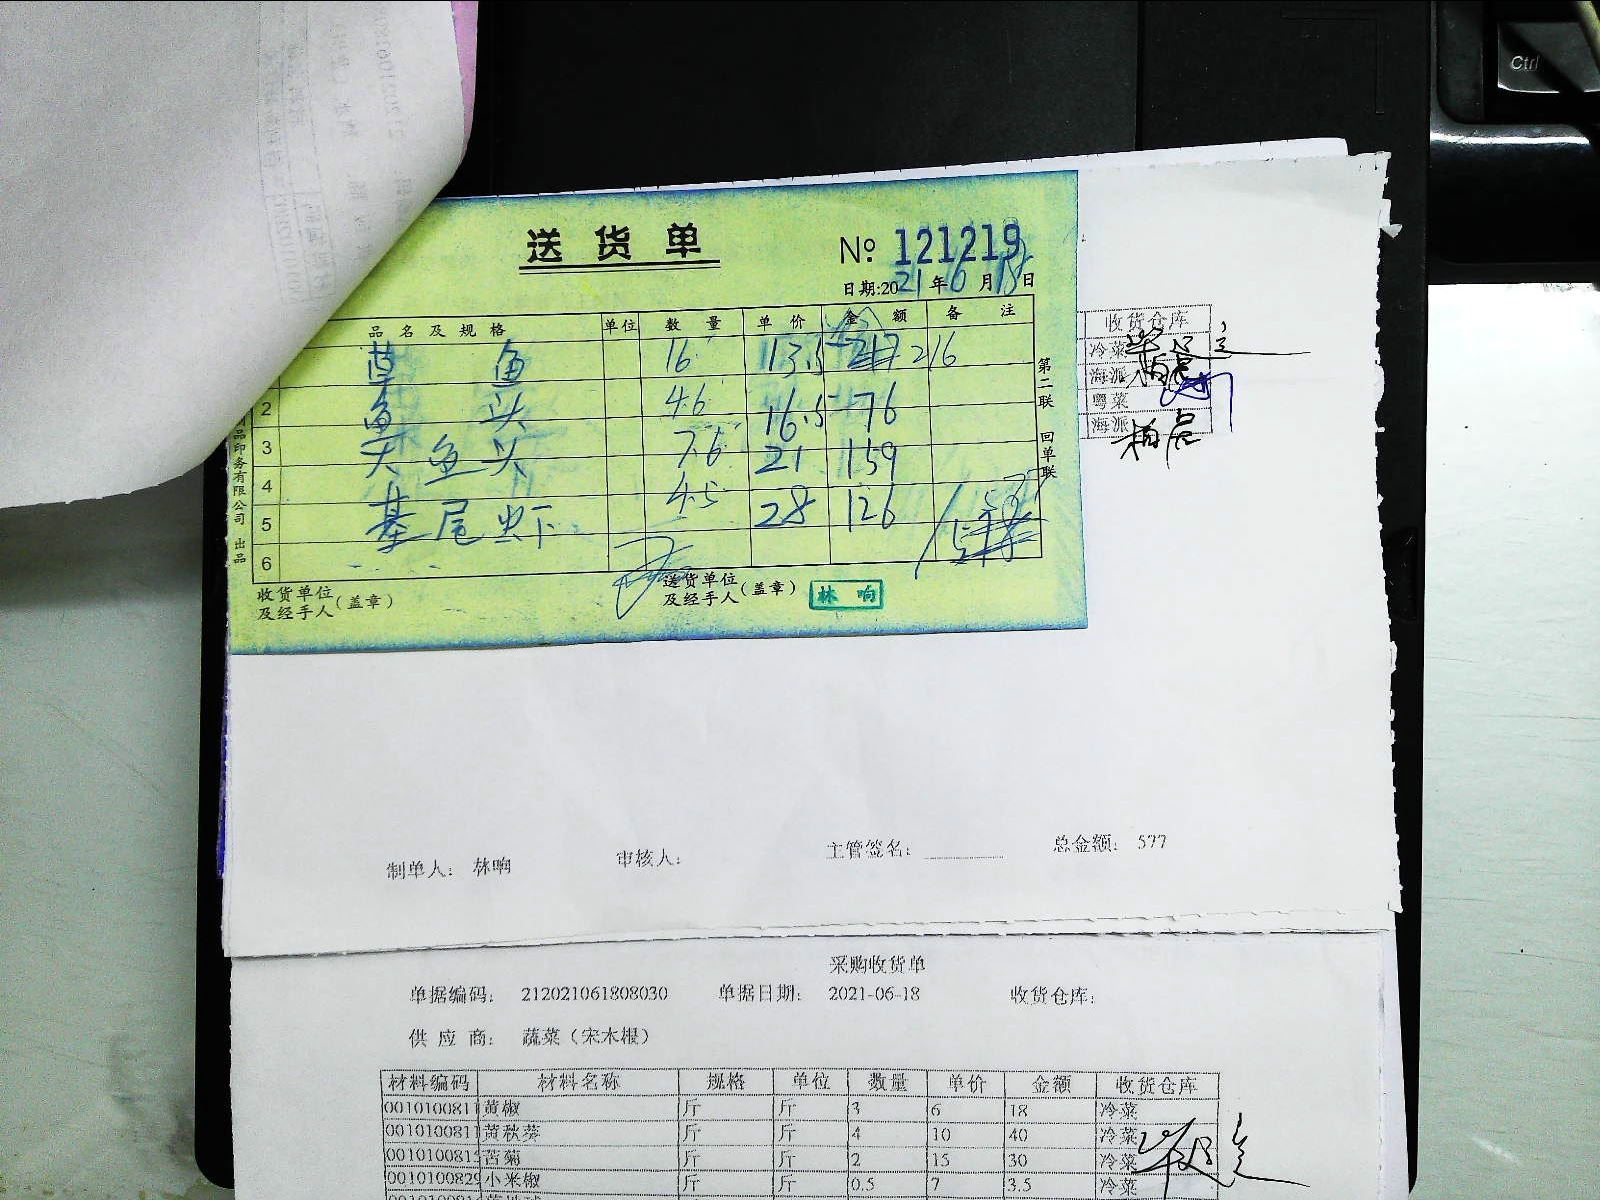 Ctrl
送货单
№ 121219
日期:2021年6月18日
品名及规格 单位 数量 单价 金额 备注
草鱼 16 13.5 216
2 鱼头 4.6 16.5 76
3 大鱼头 7.6 21 159
4 基尾虾 4.5 28 126
5
6
第二联 回单联
品印务有限公司 出品
收货单位及经手人(盖章)
送货单位及经手人(盖章) 林响
收货仓库
冷菜
海派 柏辰
粤菜
海派 柏辰
制单人: 林响 审核人: 主管签名: 总金额: 577
采购收货单
单据编码: 212021061808030 单据日期: 2021-06-18 收货仓库:
供应商: 蔬菜(宋木根)
材料编码 材料名称 规格 单位 数量 单价 金额 收货仓库
0010100811 黄椒 斤 斤 3 6 18 冷菜
0010100811 黄秋葵 斤 斤 4 10 40 冷菜
001010081 苦菊 斤 斤 2 15 30 冷菜
0010100829 小米椒 斤 斤 0.5 7 3.5 冷菜